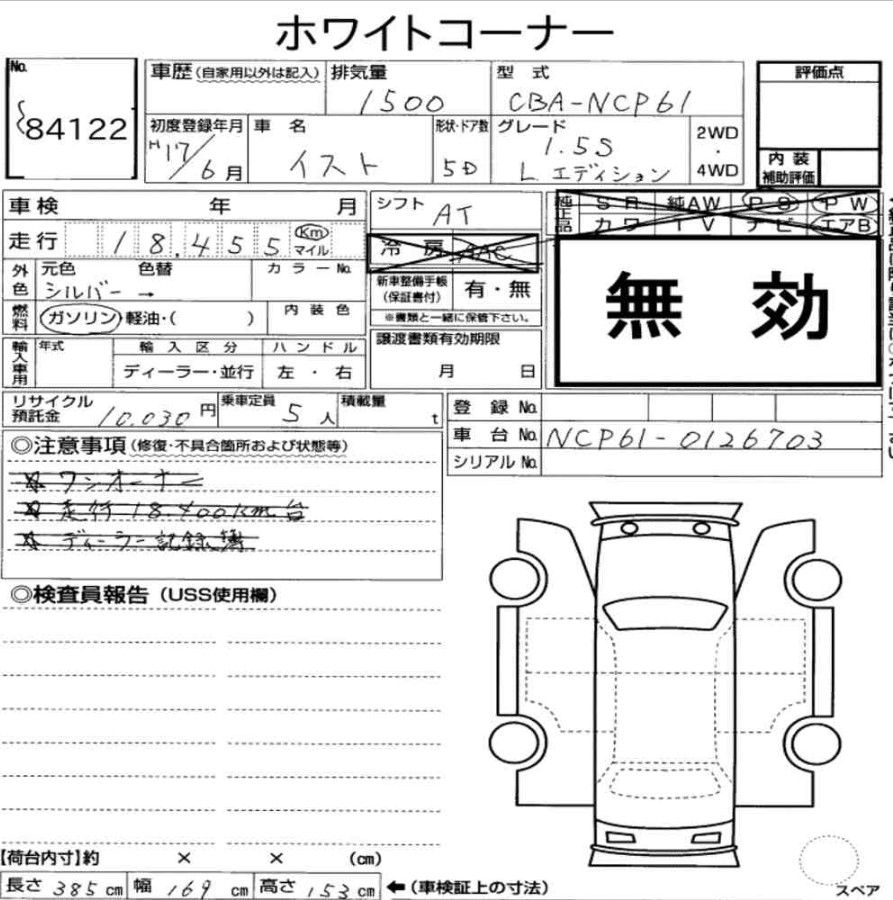 ホワイトコーナー
No.
84122
車歴(自家用以外は記入)
排気量
1500
型式
CBA-NCP61
評価点
内装
補助評価
初度登録年月
H17/6月
車名
イスト
形状・ドア数
5D
グレード
1.5S
Lエディション
2WD
・
4WD
車検 年 月
走行 18.455 Km
マイル
シフト
AT
純正品
SR 純AW PS PW
カワ TV ナビ エアB
無効
冷房 AAC
外色
元色 色替
シルバー→
カラーNo.
燃料
ガソリン・軽油・( )
内装色
新車整備手帳
(保証書付)
有・無
※書類と一緒に保管下さい。
輸入車用
年式
輸入区分
ディーラー・並行
ハンドル
左・右
譲渡書類有効期限
月 日
リサイクル
預託金
10,030円
乗車定員
5人
積載量
t
登録No.
車台No. NCP61-0126703
シリアルNo.
◎注意事項(修復・不具合箇所および状態等)
☆ワンオーナー
☆走行18.400Km台
☆ディーラー記録簿
◎検査員報告(USS使用欄)
【荷台内寸】約 × × (cm)
長さ 385cm 幅 169cm 高さ 153cm ←(車検証上の寸法)
スペア